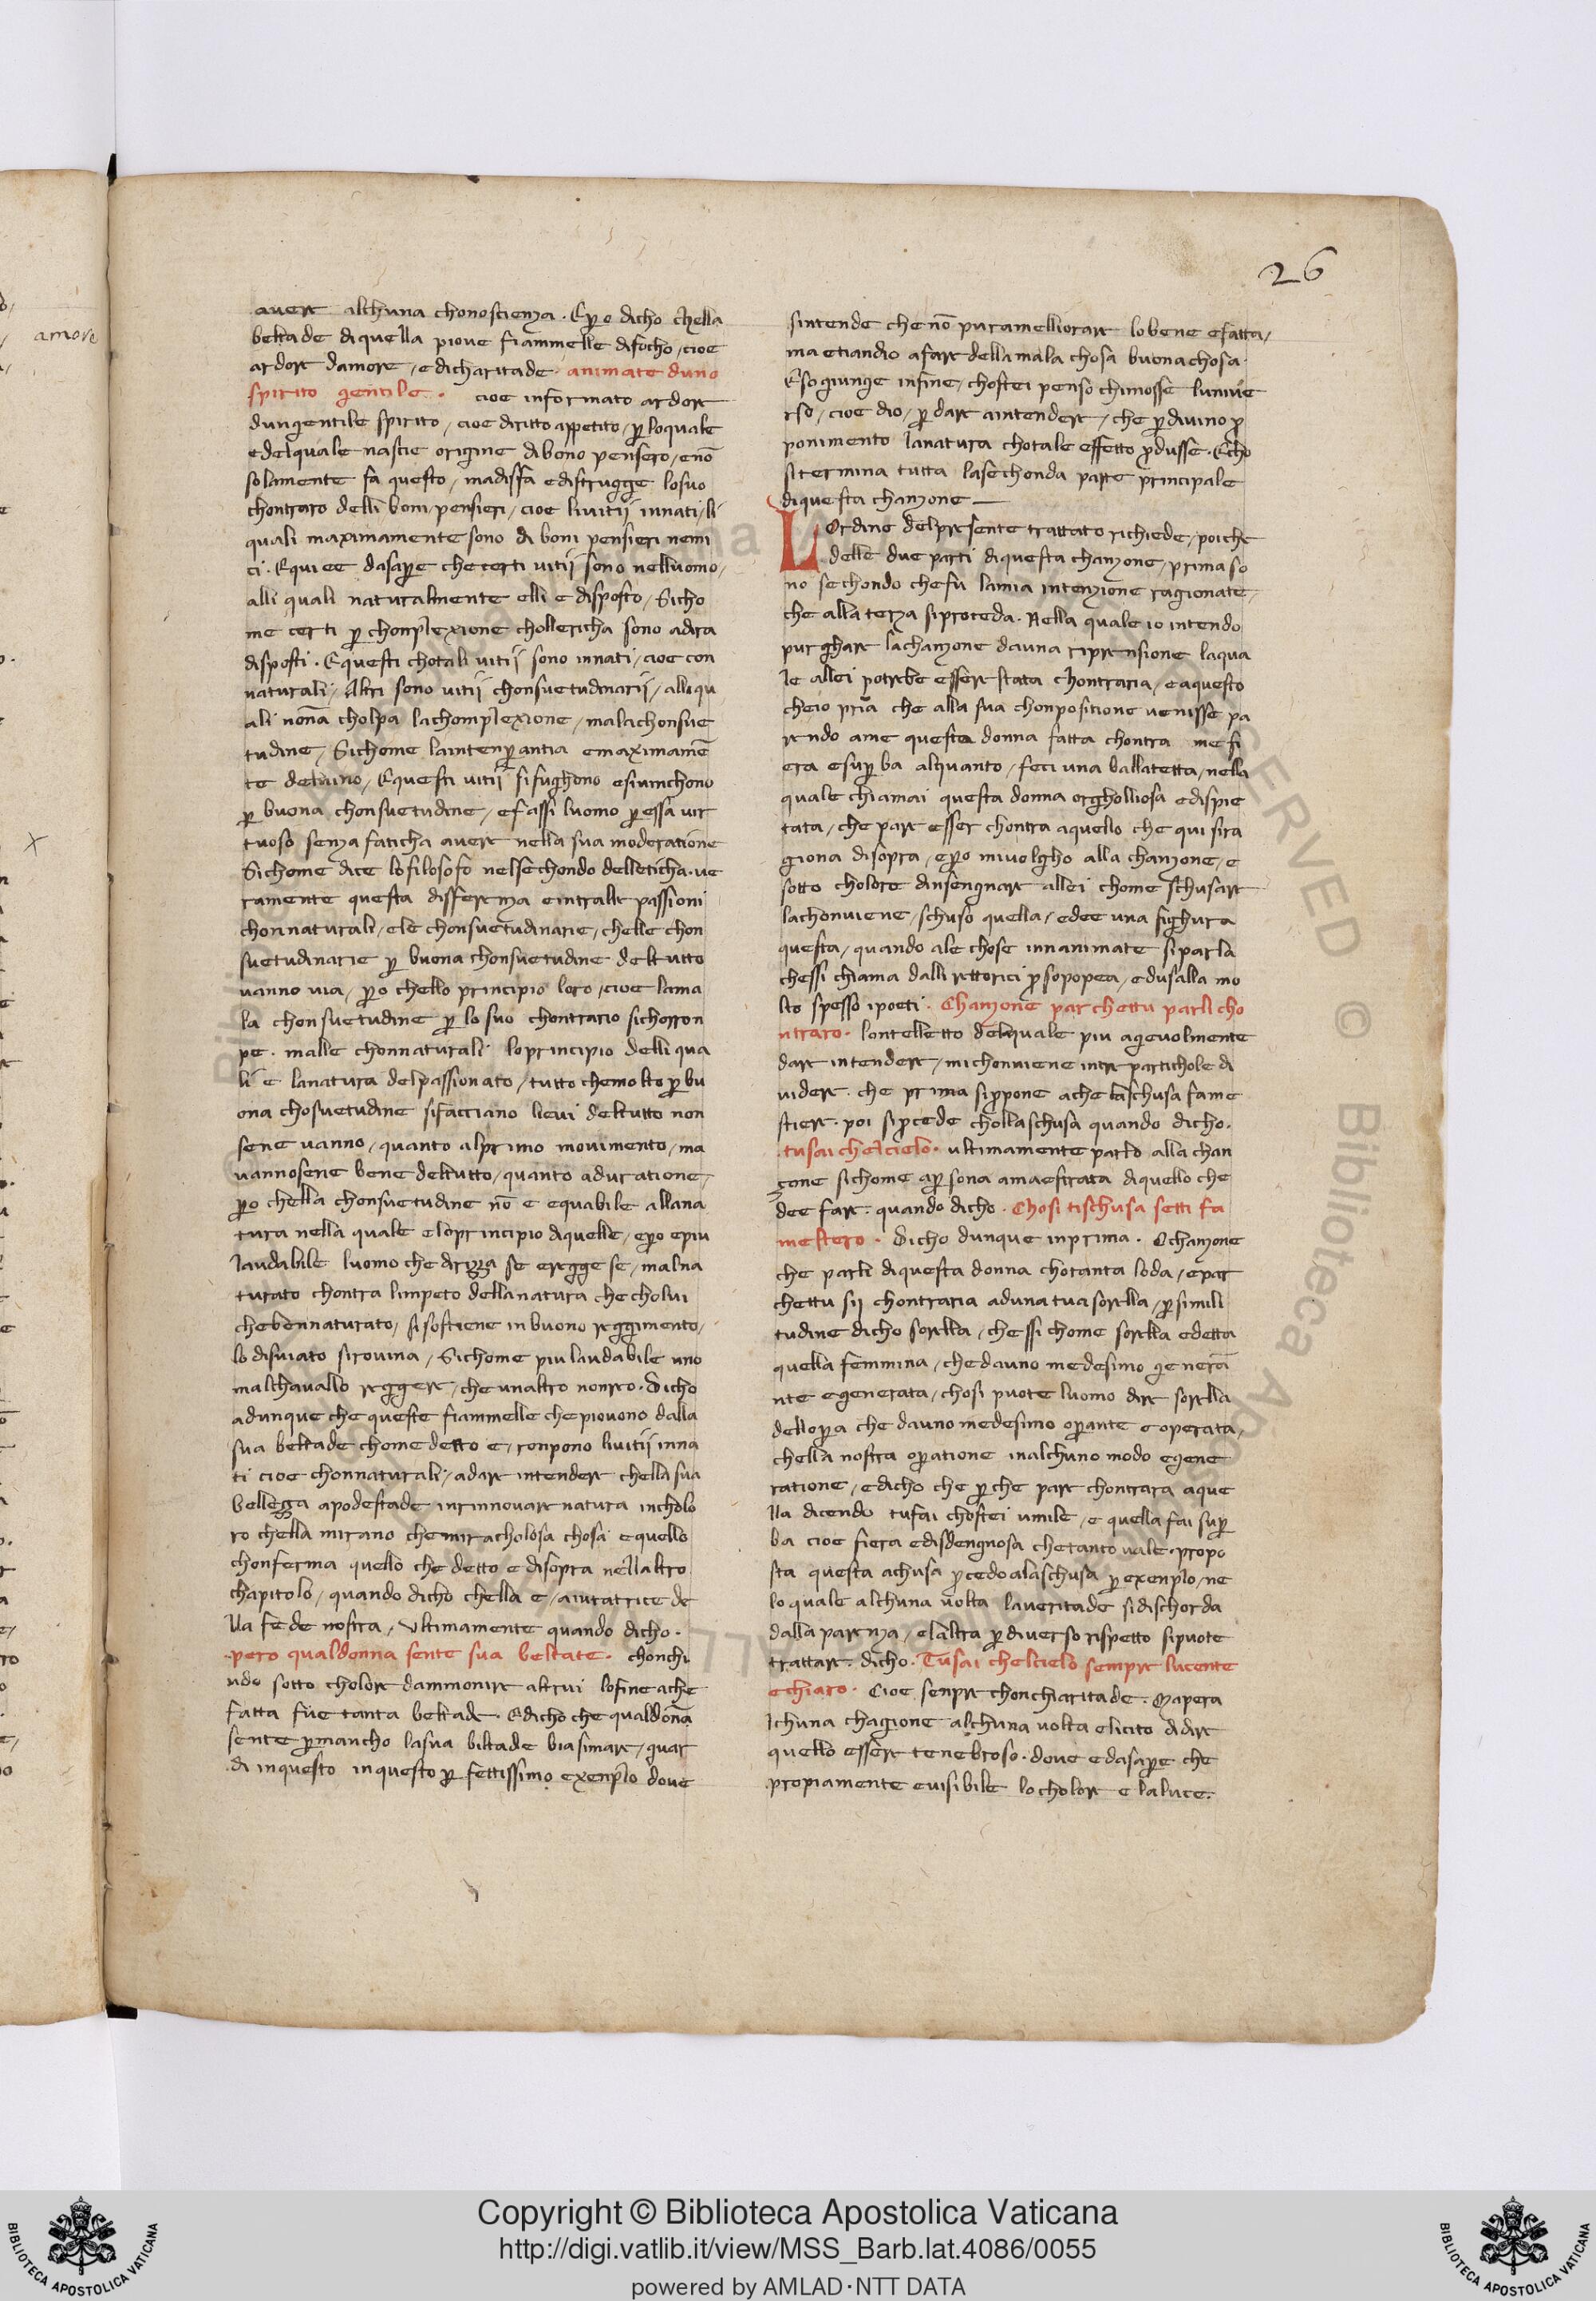 26
amore
auere alchuna chonoscienza. Eꝑo dicho chella
beltade di quella pioue fiammelle difocho, cioe
ardore damore, edicharitade. animate duno
spirito gentile. cioe informato ardore
dungentile spirito, cioe diritto appetito, ꝑloquale
edelquale nascie origine dibono pensero, enō
solamente fa questo, madisfa edistrugge losuo
chontraro delli boni pensieri, cioe liuitij innati, li
quali maximamente sono di boni pensieri nemi
ci. Equi ee dasaꝑe checerti uitij sono nelluomo,
alli quali naturalmente elli e disposto, Sicho
me certi ꝑ chonplexione chollericha sono adira
disposti. Equesti chotali uitij sono innati, cioe con
naturali, Altri sono uitij chonsuetudinarij, alliqu
ali nonā cholpa lachomplexione, malachonsue
tudine, Sichome laintenꝑantia emaximamē
te deluino, Equesti uitij sifughono esiuinchono
ꝑ buona chonsuetudine, efassi luomo ꝑessa uir
tuoso senza faticha auere nella sua moderatione
Sichome dice lofilosofo nelsechondo delleticha. ue
ramente questa differenza eintralle passioni
chonnaturali, ele chonsuetudinarie, chelle chon
suetudinarie ꝑ buona chonsuetudine deltutto
uanno uia, ꝑo chello principio loro, cioe lama
la chonsuetudine ꝑ lo suo chontrario sichorron
pe. malle chonnaturali loprincipio delli qua
li e lanatura delpassionato, tutto chemolto ꝑbu
ona chosuetudine sifacciano lieui deltutto non
sene uanno, quanto alprimo mouimento, ma
uannosene bene deltutto, quanto aduratione,
ꝑo chella chonsuetudine nō e equabile allana
tura nella quale eloprincipio diquelle, eꝑo epiu
laudabile luomo che dirizza se eregge se, malna
turato chontra limpeto dellanatura che cholui
chebennaturato, si sostiene in buono reggimento,
lo disuiato sirouina, Sichome piu laudabile uno
malchauallo reggere, che unaltro nonreo. Dicho
adunque che queste fiammelle che piouono dalla
sua beltade chome detto e, ronpono liuitij inna
ti cioe chonnaturali, adare intendere chella sua
bellezza apodestade inrinnouare natura incholo
ro chella mirano che miracholosa chosa equello
chonferma quello che detto e disopra nellaltro
chapitolo, quando dicho chella e, aiutatrice de
lla fede nostra, Vltimamente quando dicho.
pero qualdonna sente sua beltate. chonchi
udo sotto cholore dammonire altrui lofine ache
fatta fue tanta beltade. Edicho che qualdōna
sente ꝑmancho lasua biltade biasimare, guar
di inquesto inquesto ꝑfettissimo exenplo doue
sintende che nō pur amelliorare lobene efatta,
ma etiandio afare della mala chosa buona chosa.
Esogiunge infine, chostei penso chimosse luniue
rso, cioe dio, ꝑ dare aintendere, che ꝑdiuino ꝓ
ponimento lanatura chotale effetto ꝓdusse. Echo
si termina tutta lasechonda parte principale
diquesta chanzone
LOrdine delpresente trattato richiede, poiche
delle due parti diquesta chanzone, prima so
no sechondo chefu lamia intenzione ragionate,
che alla terza siproceda. Nella quale io intendo
purghare lachanzone dauna riprensione laqua
le allei potrebe essere stata chontraria, eaquesto
cheio pria che alla sua chonpositione uenisse pa
rendo ame questa donna fatta chontra me fi
era esuꝑba alquanto, feci una ballatetta, nella
quale chiamai questa donna orghogliosa edispie
tata, che pare esser chontra aquello che qui sira
giona disopra, eꝑo miuolgho alla chanzone, e
sotto cholore dinsengnare allei chome schusare
lachonuiene, schuso quella, edee una fighura
questa, quando ale chose innanimate siparla
chessi chiama dalli rettorici ꝓsopopea, edusalla mo
lto spesso ipoeti. Chanzone par chettu parli cho
ntraro. lontelletto delquale piu ageuolmente
dare intendere, michonuiene intre partichole di
uidere. che prima siꝓpone ache laschusa fame
stiere. poi siꝓcede cholla schusa quando dicho.
tusai chelcielo. ultimamente parlo alla chan
zone sichome aꝑsona amaestrata diquello che
dee fare. quando dicho. Chosi tischusa setti fa
mestero. Dicho dunque inprima. O chanzone
che parli diquesta donna chotanta loda, epar
chettu sij chontraria aduna tua sorella, ꝑsimili
tudine dicho sorella, chessi chome sorella edetta
quella femmina, chedauno medesimo generā
nte egenerata, chosi puote luomo dire sorella
delloꝑa che dauno medesimo oꝑante eoperata,
chella nostra oꝑatione inalchuno modo egene
ratione, edicho che ꝑche pare chontrara aque
lla dicendo tufai chostei umile, e quella fai suꝑ
ba cioe fiera edisdengnosa chetanto uale. propo
sta questa achusa ꝓcedo alaschusa ꝑexenplo, ne
lo quale alchuna uolta laueritade sidischorda
dalla parenza, elaltra ꝑdiuerso rispetto sipuote
trattare. dicho. Tusai chelcielo sempre lucente
echiaro. Cioe senpre chonchiaritade. Mapera
lchuna chagione alchuna uolta elicito didire
quello essere tenebroso. doue edasaꝑe che
propiamente euisibile locholore e laluce.
Copyright © Biblioteca Apostolica Vaticana
http://digi.vatlib.it/view/MSS_Barb.lat.4086/0055
powered by AMLAD·NTT DATA
BIBLIOTECA APOSTOLICA VATICANA
BIBLIOTECA APOSTOLICA VATICANA